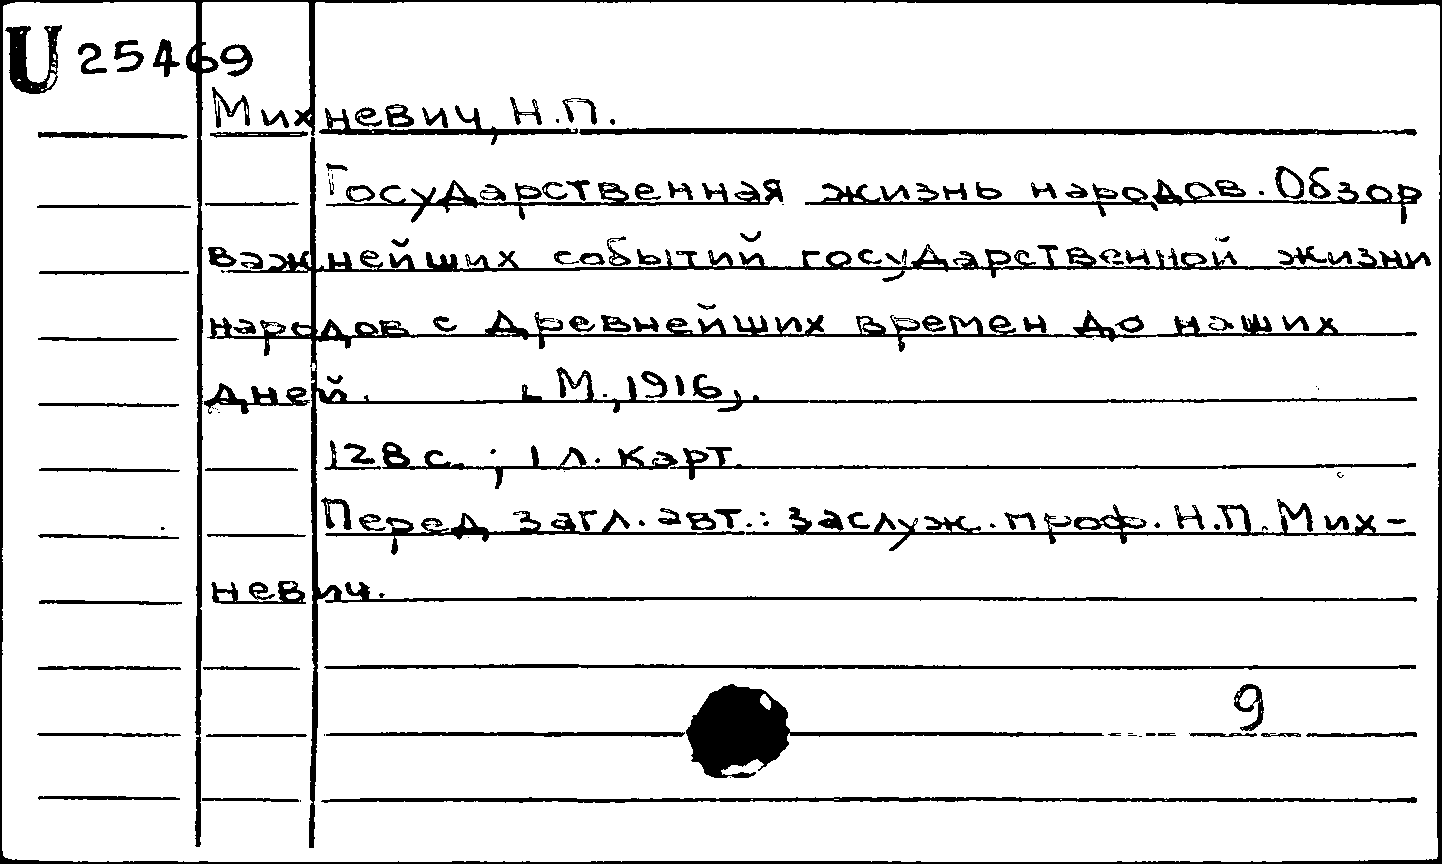 U 25469
Михневич, Н.П.
Государственная жизнь народов. Обзор
важнейших событий государственной жизни
народов с древнейших времен до наших
дней. М., 1916,.
128 с. ; 1 л. карт.
Перед загл. авт.: заслуж. проф. Н.П. Мих-
невич.
9